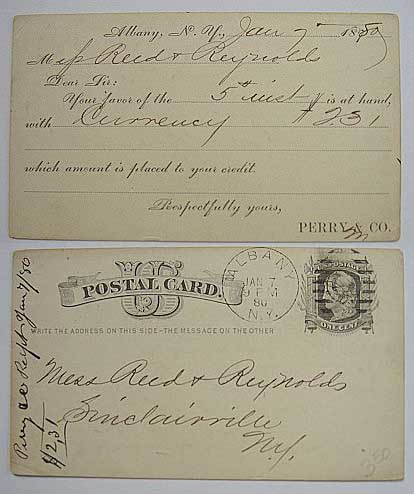 Albany, N. Y., Jan 7 1880
Mess Reed & Reynolds
Dear Sir:
Your favor of the 5th inst is at hand,
with Currency $2.31
which amount is placed to your credit.
Respectfully yours,
PERRY & CO.
US
POSTAL CARD.
WRITE THE ADDRESS ON THIS SIDE - THE MESSAGE ON THE OTHER
ALBANY
JAN 7
9 PM
80
N.Y.
ONE CENT
Mess Reed & Reynolds
Sinclairville
N.Y.
Perry & Co Recpt Jan 7/80
$2.31
350